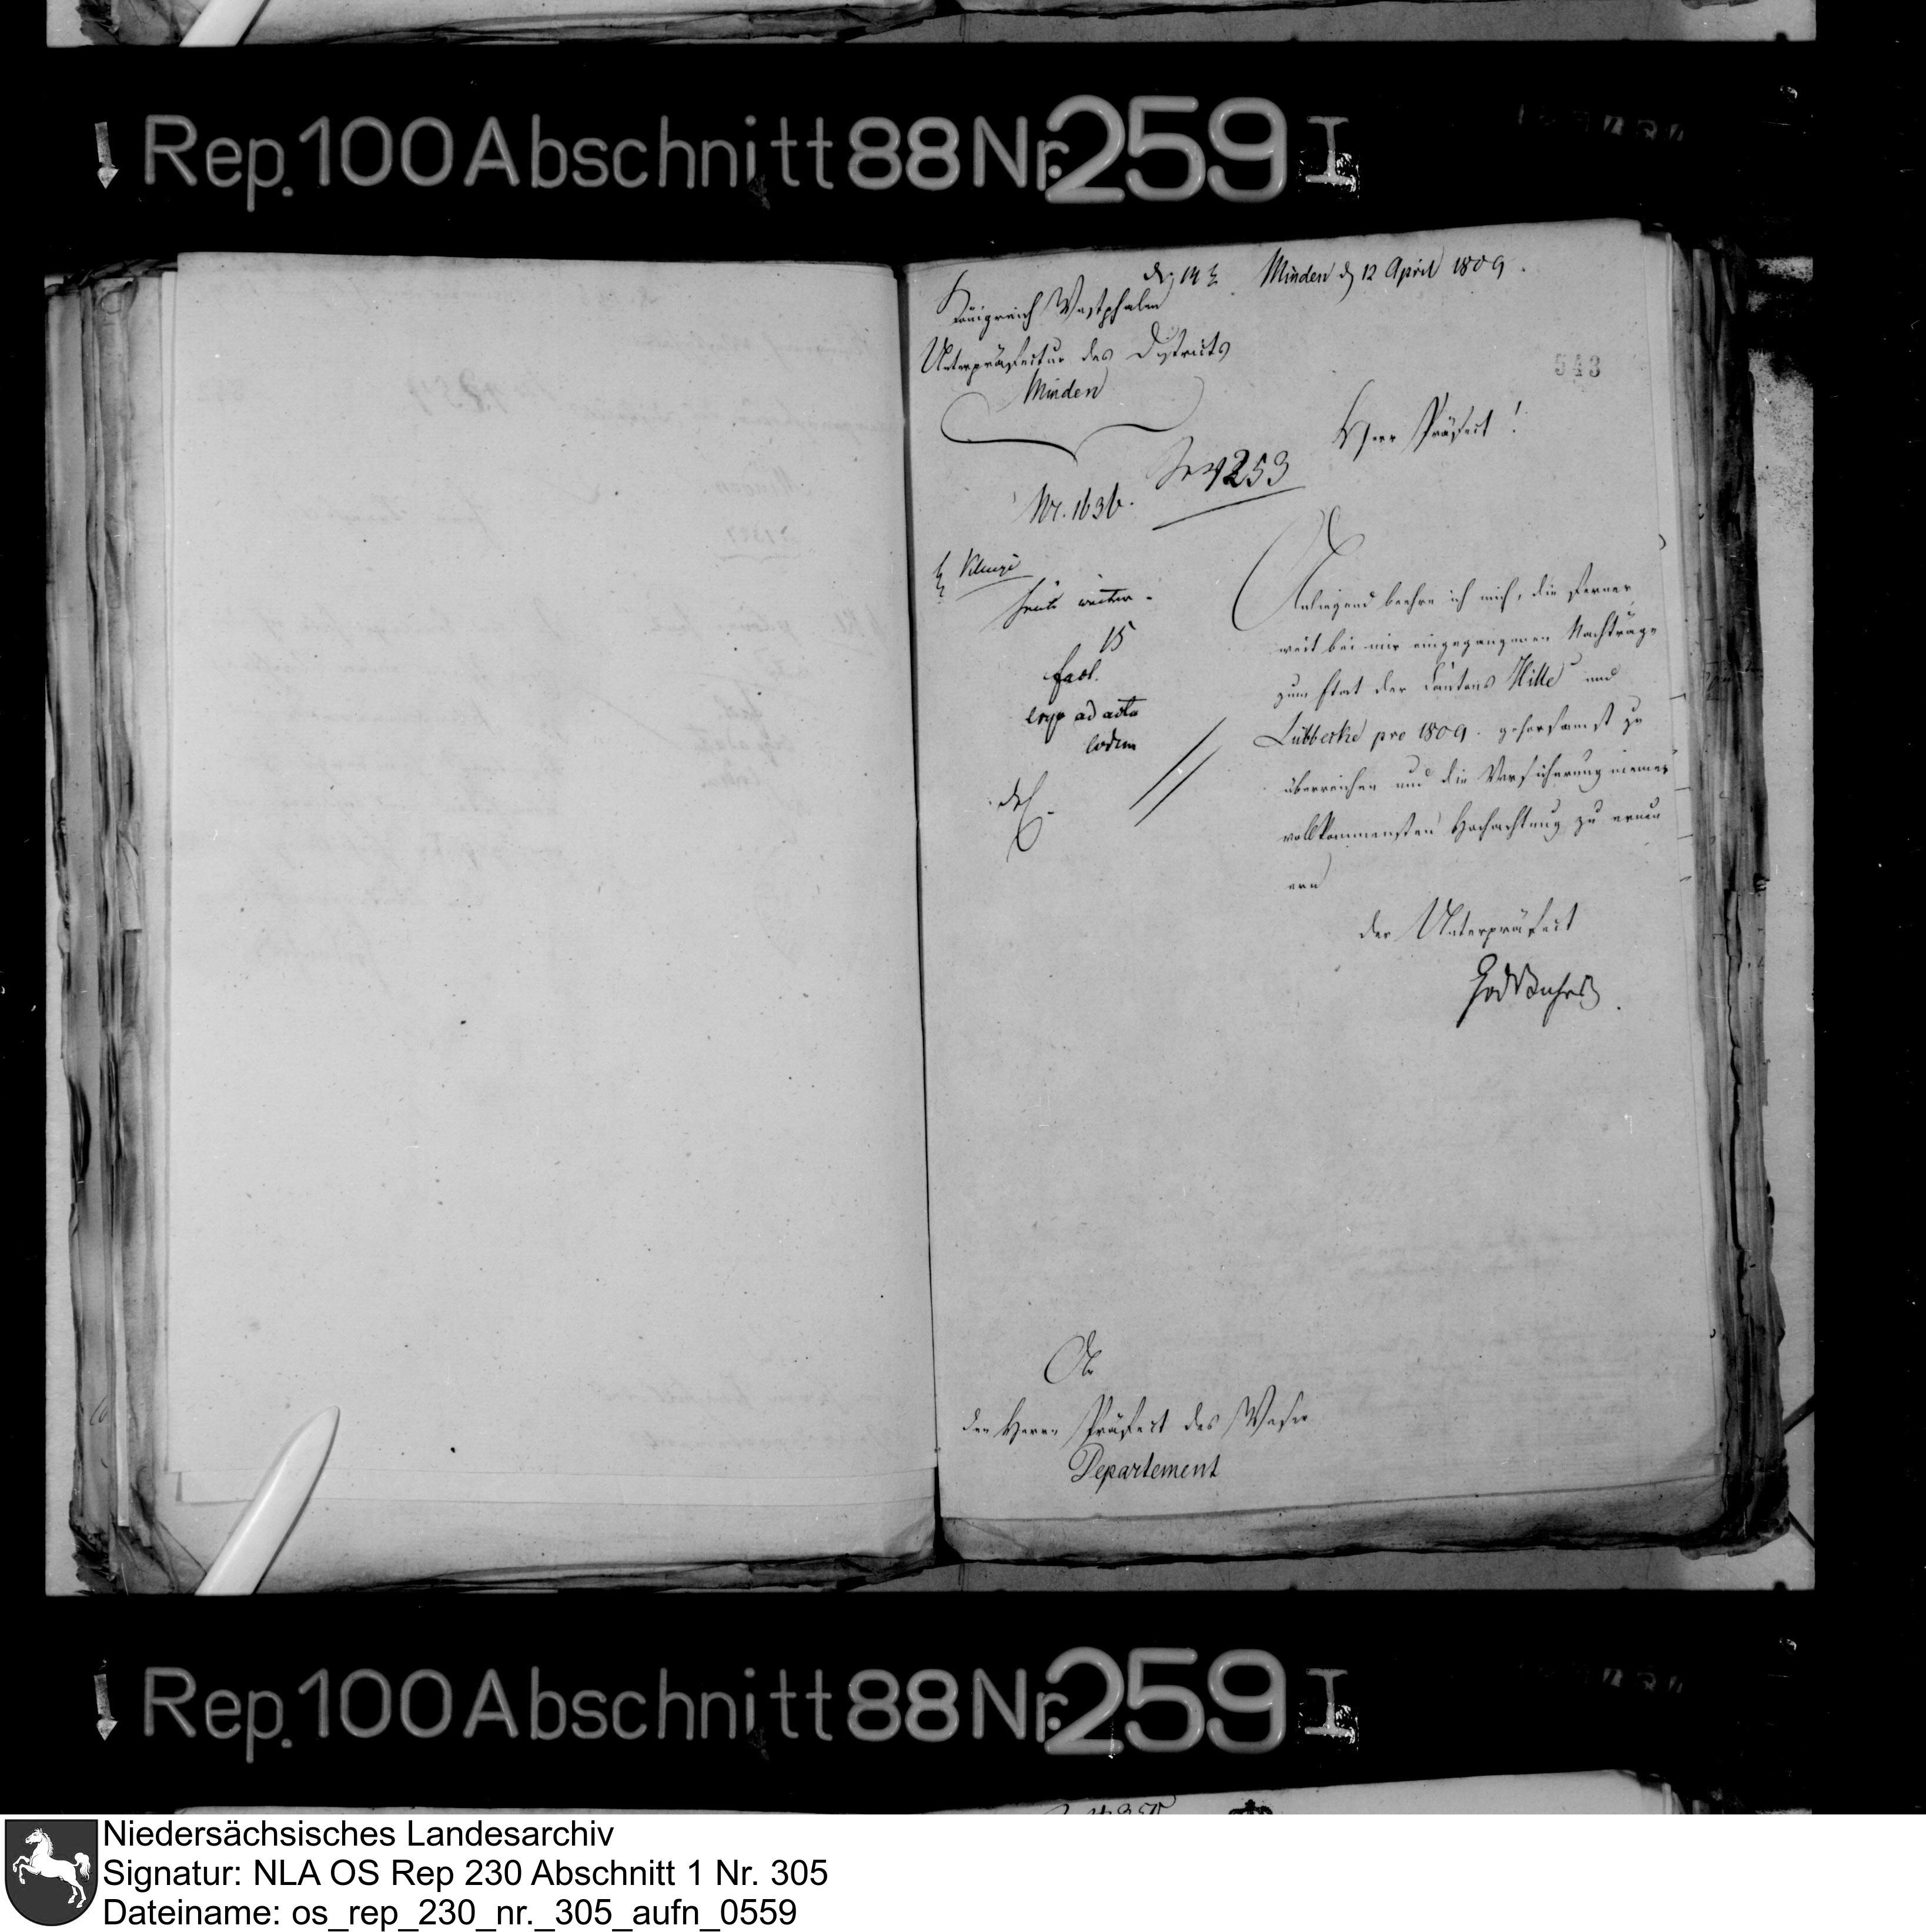 Rep. 100 Abschnitt 88 Nr. 259 I
Minden d 12 April 1809.
Königreich Westphalen
Unterpräfectur des Districts
Minden
543
Herr Präfect!
4253
Nr. 1636.
Anliegend beehre ich mich, die ferner
weit bei mir eingegangenen Nachträge
zum Etat der Cantons Hille und
Lübbecke pro 1809. gehorsamst zu
überreichen und die Versicherung meiner
vollkommensten Hochachtung zu erneu
ern
15
fact.
ergo ad acta
eodem
der Unterpräfect
An
den Herrn Präfect des Weser
Departement
Rep. 100 Abschnitt 88 Nr. 259 I
Niedersächsisches Landesarchiv
Signatur: NLA OS Rep 230 Abschnitt 1 Nr. 305
Dateiname: os_rep_230_nr._305_aufn_0559